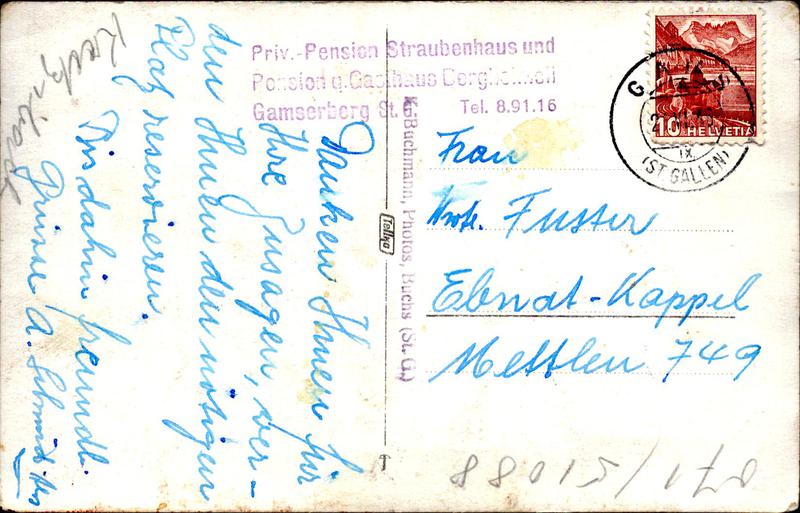 Priv.-Pension Straubenhaus und
Pension q. Gasthaus Bergheimeli
Gamserberg St. G. Tel. 8.91.16
Danken Ihnen für
Ihre Zusagen, wer-
den Ihnen den nötigen
Platz reservieren.
Bis dahin freundl.
Grüsse A. Schmid
Tellko
K. Buchmann, Photos, Buchs (St. G.)
10 HELVETIA
(ST. GALLEN)
IX
Frau
Fuster
Ebnat-Kappel
Mettlen 749
071/51088